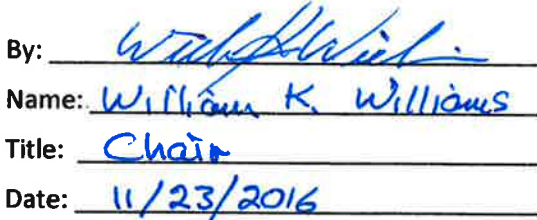 By:
Name: William K. Williams
Title: Chair
Date: 11/23/2016